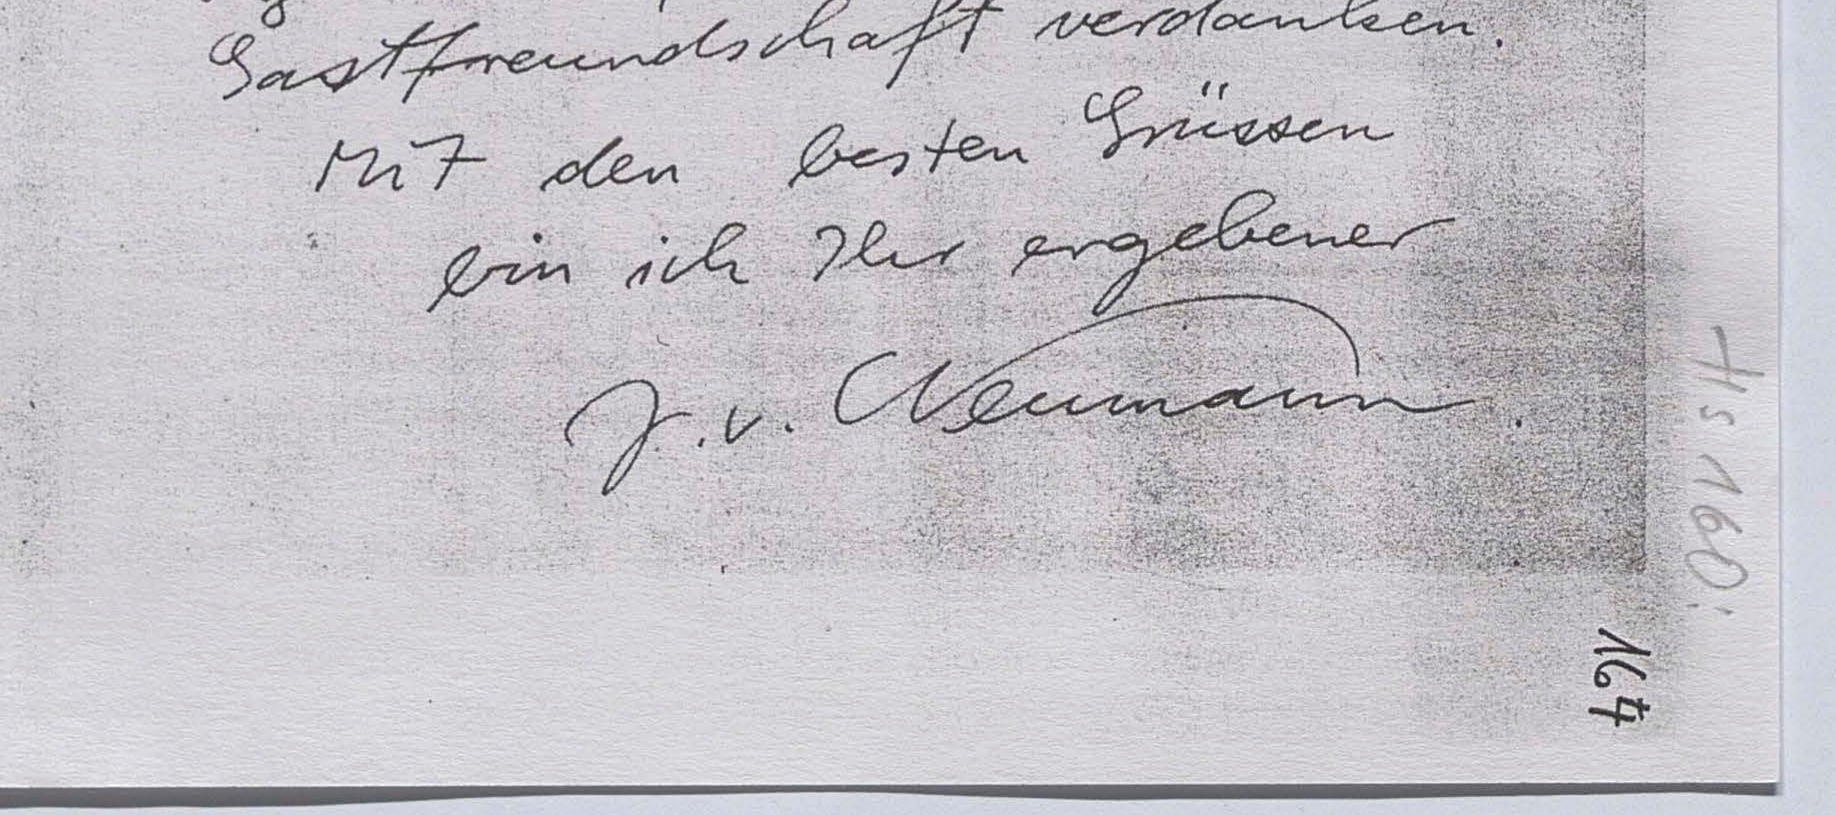 Gastfreundschaft verdanken.
Mit den besten Grüssen
bin ich Ihr ergebener
J. v. Neumann.
Hs 160:
167